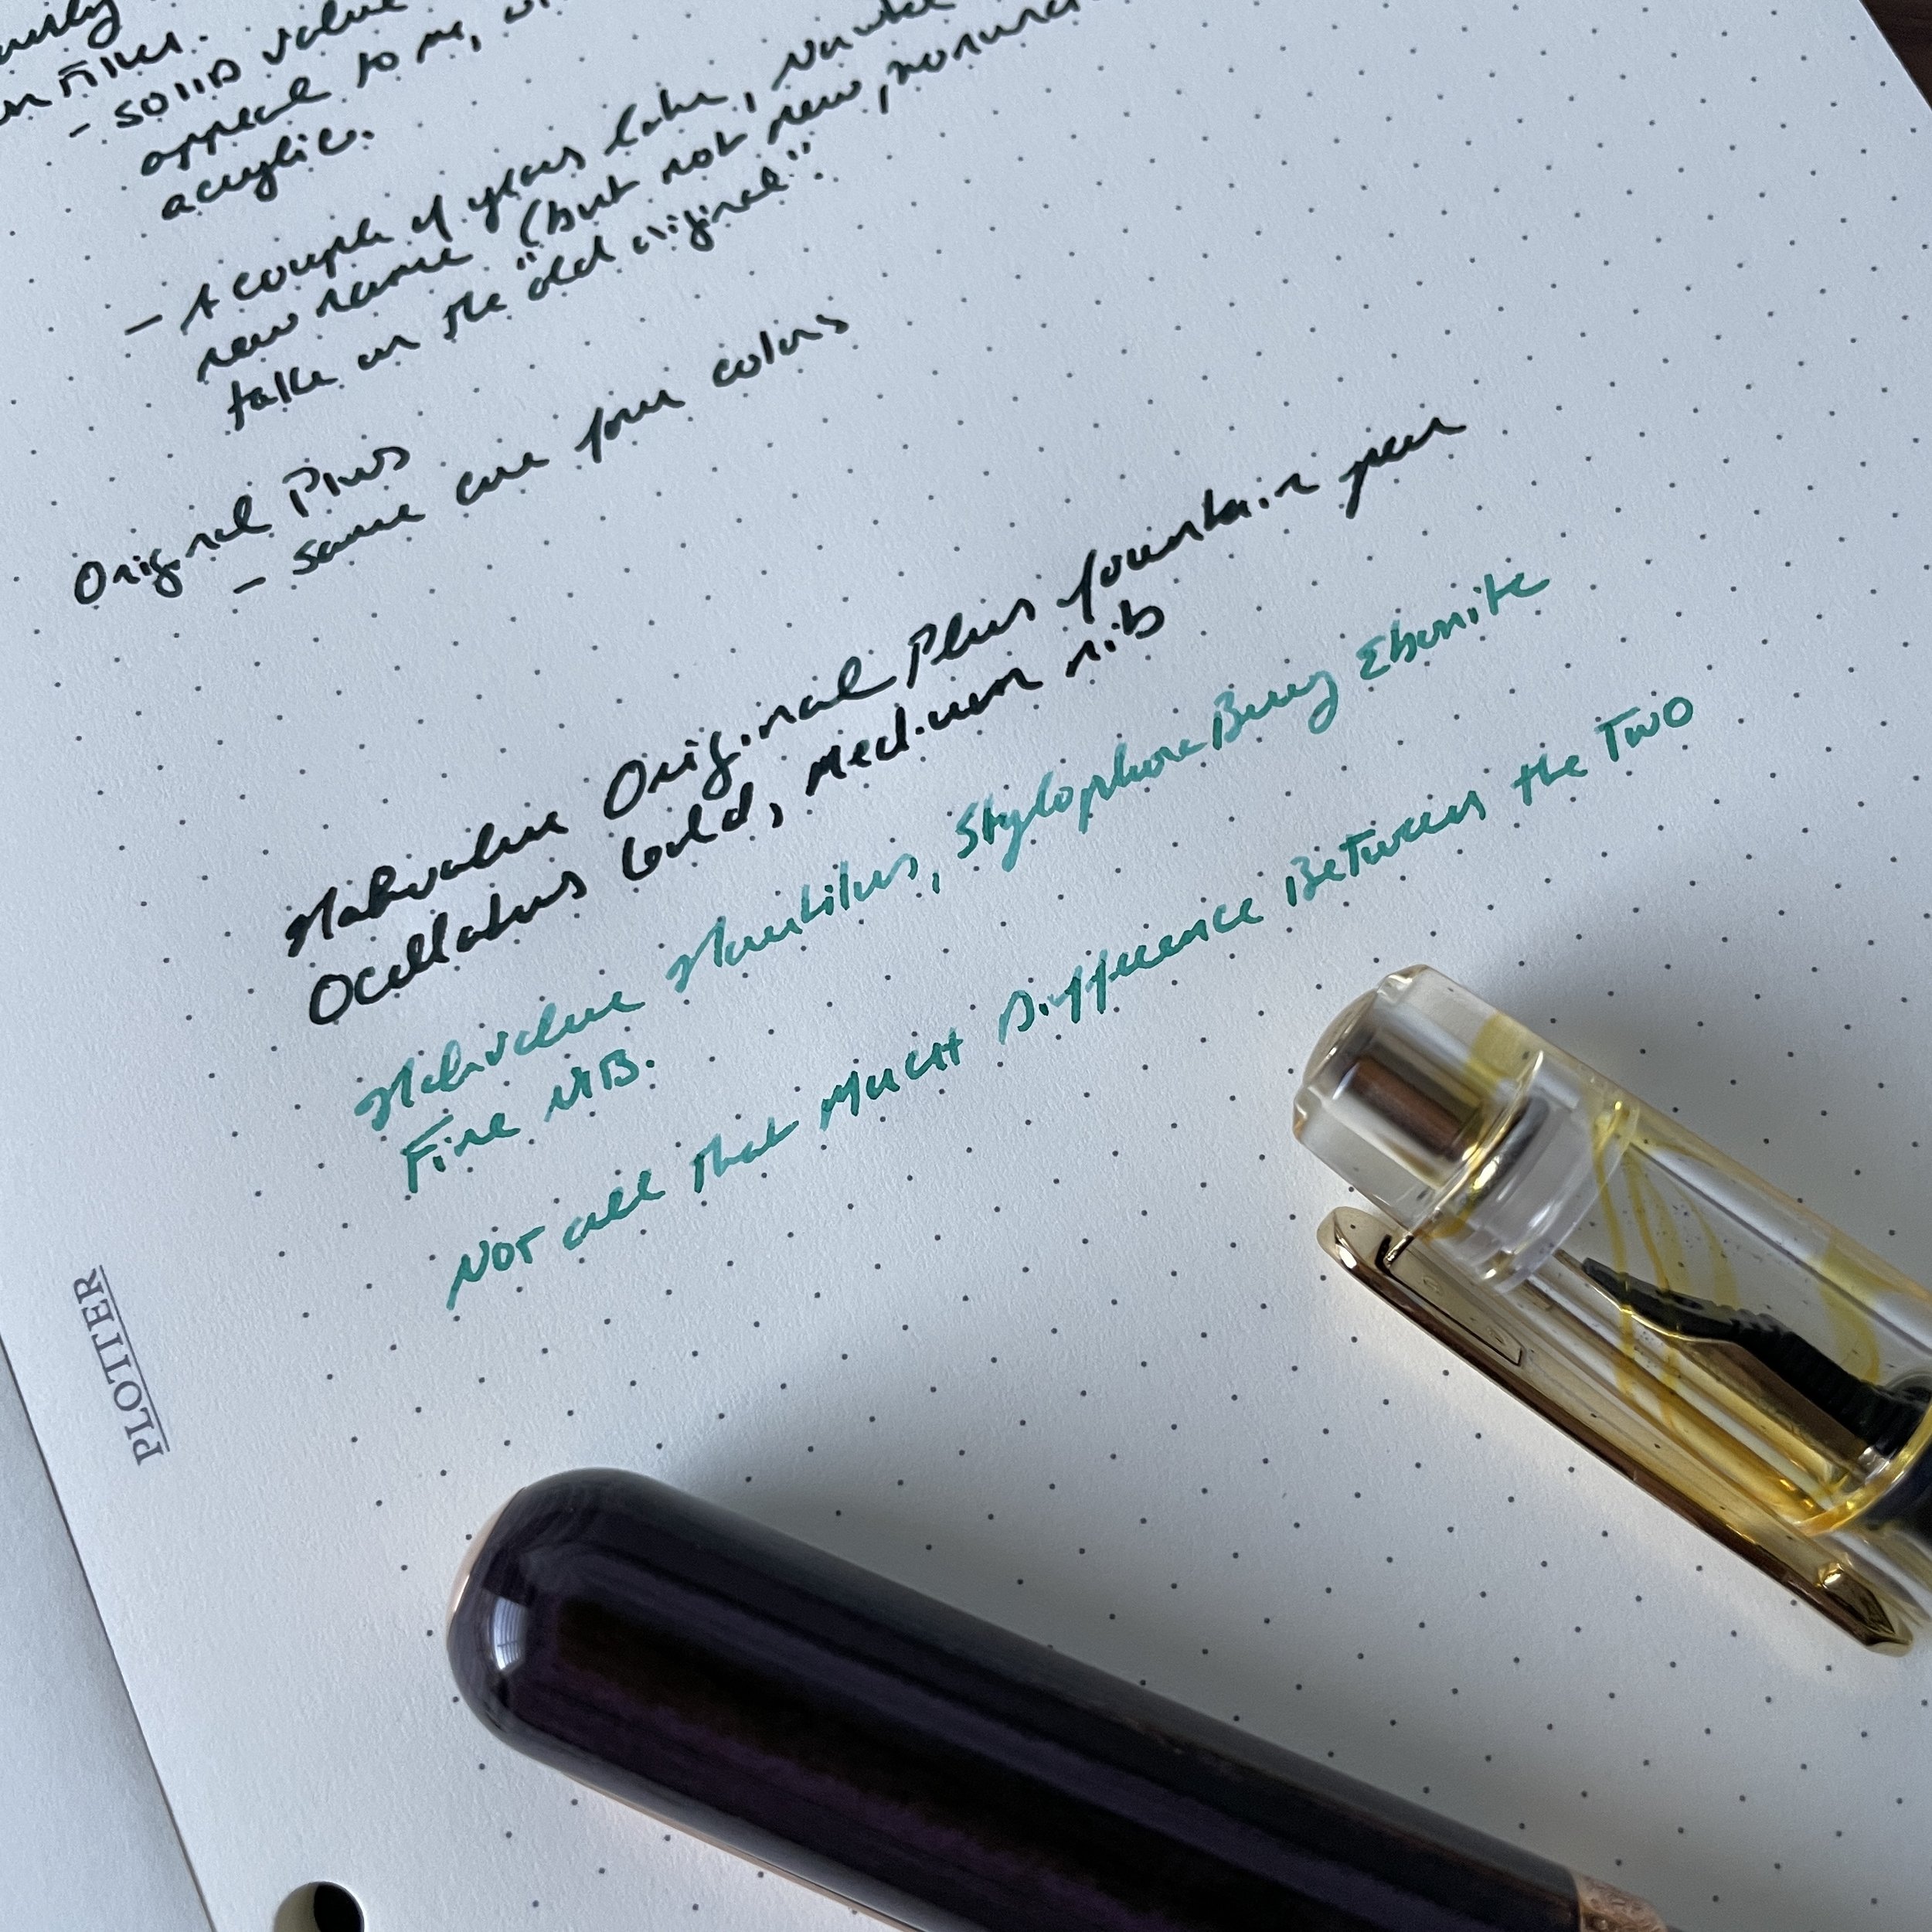 - SOLID value
appeal to me,
acrylic.
- A couple of years later,
new name (but not new,
take on the "old original".
Original Plus
- same core four colors
Nahvalur Original Plus fountain pen
Ocellatus Gold, medium nib
Nahvalur Nautilus, Stylophora Berry Ebonite
Fine NIB.
NOT all That MUCH Difference BeTween the TWO
PLOTTER